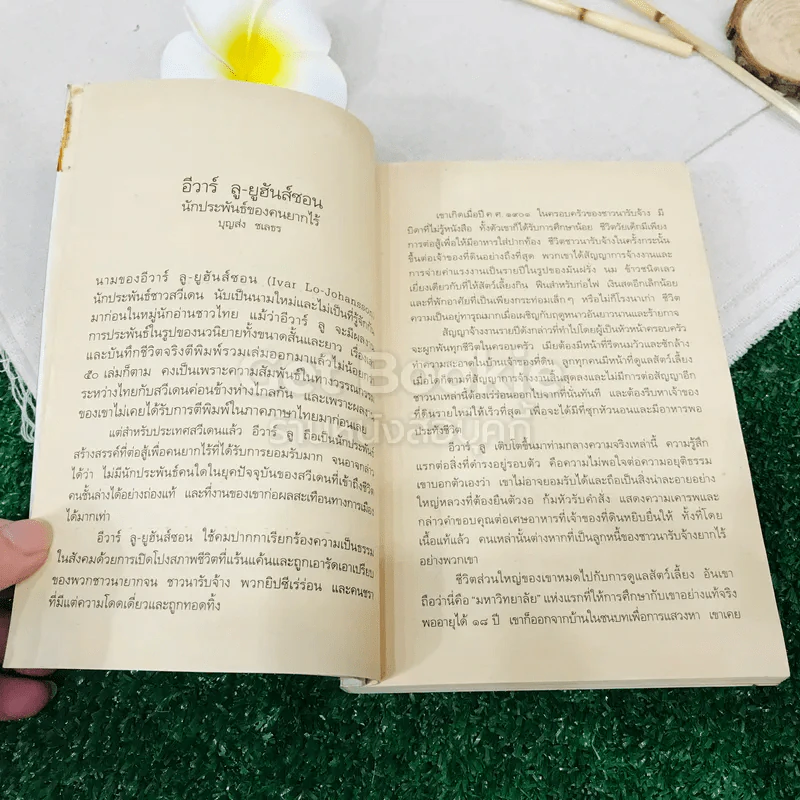 อีวาร์ ลู-ยูฮันส์ซอน
นักประพันธ์ของคนยากไร้
บุญส่ง ชเลธร
นามของอีวาร์ ลู-ยูฮันส์ซอน (Ivar Lo-Johansson)
นักประพันธ์ชาวสวีเดน นับเป็นนามใหม่และไม่เป็นที่รู้จักกัน
มาก่อนในหมู่นักอ่านชาวไทย แม้ว่าอีวาร์ ลู จะมีผลงาน
การประพันธ์ในรูปของนวนิยายทั้งขนาดสั้นและยาว เรื่องสั้น
และบันทึกชีวิตจริงตีพิมพ์รวมเล่มออกมาแล้วไม่น้อยกว่า
๕๐ เล่มก็ตาม คงเป็นเพราะความสัมพันธ์ในทางวรรณกรรม
ระหว่างไทยกับสวีเดนค่อนข้างห่างไกลกัน และเพราะผลงาน
ของเขาไม่เคยได้รับการตีพิมพ์ในภาคภาษาไทยมาก่อนเลย
แต่สำหรับประเทศสวีเดนแล้ว อีวาร์ ลู ถือเป็นนักประพันธ์
สร้างสรรค์ที่ต่อสู้เพื่อคนยากไร้ที่ได้รับการยอมรับมาก จนอาจกล่าว
ได้ว่า ไม่มีนักประพันธ์คนใดในยุคปัจจุบันของสวีเดนที่เข้าถึงชีวิต
คนชั้นล่างได้อย่างถ่องแท้ และที่งานของเขาก่อผลสะเทือนทางการเมือง
ได้มากเท่า
อีวาร์ ลู-ยูฮันส์ซอน ใช้คมปากกาเรียกร้องความเป็นธรรม
ในสังคมด้วยการเปิดโปงสภาพชีวิตที่แร้นแค้นและถูกเอารัดเอาเปรียบ
ของพวกชาวนายากจน ชาวนารับจ้าง พวกยิปซีเร่ร่อน และคนชรา
ที่มีแต่ความโดดเดี่ยวและถูกทอดทิ้ง
เขาเกิดเมื่อปี ค.ศ. ๑๙๐๑ ในครอบครัวของชาวนารับจ้าง มี
บิดาที่ไม่รู้หนังสือ ทั้งตัวเขาก็ได้รับการศึกษาน้อย ชีวิตวัยเด็กมีเพียง
การต่อสู้เพื่อให้มีอาหารใส่ปากท้อง ชีวิตชาวนารับจ้างในครั้งกระนั้น
ขึ้นต่อเจ้าของที่ดินอย่างถึงที่สุด พวกเขาได้สัญญาการจ้างงานและ
การจ่ายค่าแรงงานเป็นรายปีในรูปของมันฝรั่ง นม ข้าวชนิดเลว
เยี่ยงเดียวกับที่ให้สัตว์เลี้ยงกิน ฟืนสำหรับก่อไฟ เงินสดอีกเล็กน้อย
และที่พักอาศัยที่เป็นเพียงกระท่อมเล็กๆ หรือไม่ก็โรงนาเก่า ชีวิต
ความเป็นอยู่ทารุณมากเมื่อเผชิญกับฤดูหนาวอันยาวนานและร้ายกาจ
สัญญาจ้างงานรายปีดังกล่าวที่ทำไปโดยผู้เป็นหัวหน้าครอบครัว
จะผูกพันทุกชีวิตในครอบครัว เมียต้องมีหน้าที่รีดนมวัวและซักล้าง
ทำความสะอาดในบ้านเจ้าของที่ดิน ลูกทุกคนมีหน้าที่ดูแลสัตว์เลี้ยง
เมื่อใดก็ตามที่สัญญาการจ้างงานสิ้นสุดลงและไม่มีการต่อสัญญาอีก
ชาวนาเหล่านี้ต้องเร่ร่อนออกไปจากที่นั่นทันที และต้องรีบหาเจ้าของ
ที่ดินรายใหม่ให้เร็วที่สุด เพื่อจะได้มีที่ซุกหัวนอนและมีอาหารพอ
ประทังชีวิต
อีวาร์ ลู เติบโตขึ้นมาท่ามกลางความจริงเหล่านี้ ความรู้สึก
แรกต่อสิ่งที่ดำรงอยู่รอบตัว คือความไม่พอใจต่อความอยุติธรรม
เขาบอกตัวเองว่า เขาไม่อาจยอมรับได้และถือเป็นสิ่งน่าละอายอย่าง
ใหญ่หลวงที่ต้องยืนตัวงอ ก้มหัวรับคำสั่ง แสดงความเคารพและ
กล่าวคำขอบคุณต่อเศษอาหารที่เจ้าของที่ดินหยิบยื่นให้ ทั้งที่โดย
เนื้อแท้แล้ว คนเหล่านั้นต่างหากที่เป็นลูกหนี้ของชาวนารับจ้างยากไร้
อย่างพวกเขา
ชีวิตส่วนใหญ่ของเขาหมดไปกับการดูแลสัตว์เลี้ยง อันเขา
ถือว่านี่คือ "มหาวิทยาลัย" แห่งแรกที่ให้การศึกษากับเขาอย่างแท้จริง
พออายุได้ ๑๘ ปี เขาก็ออกจากบ้านในชนบทเพื่อการแสวงหา เขาเคย